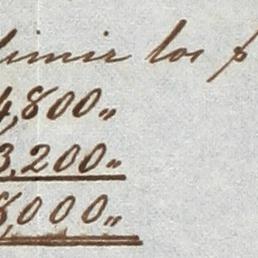 dimir los p
4,800,,
3,200,,
8,000,,